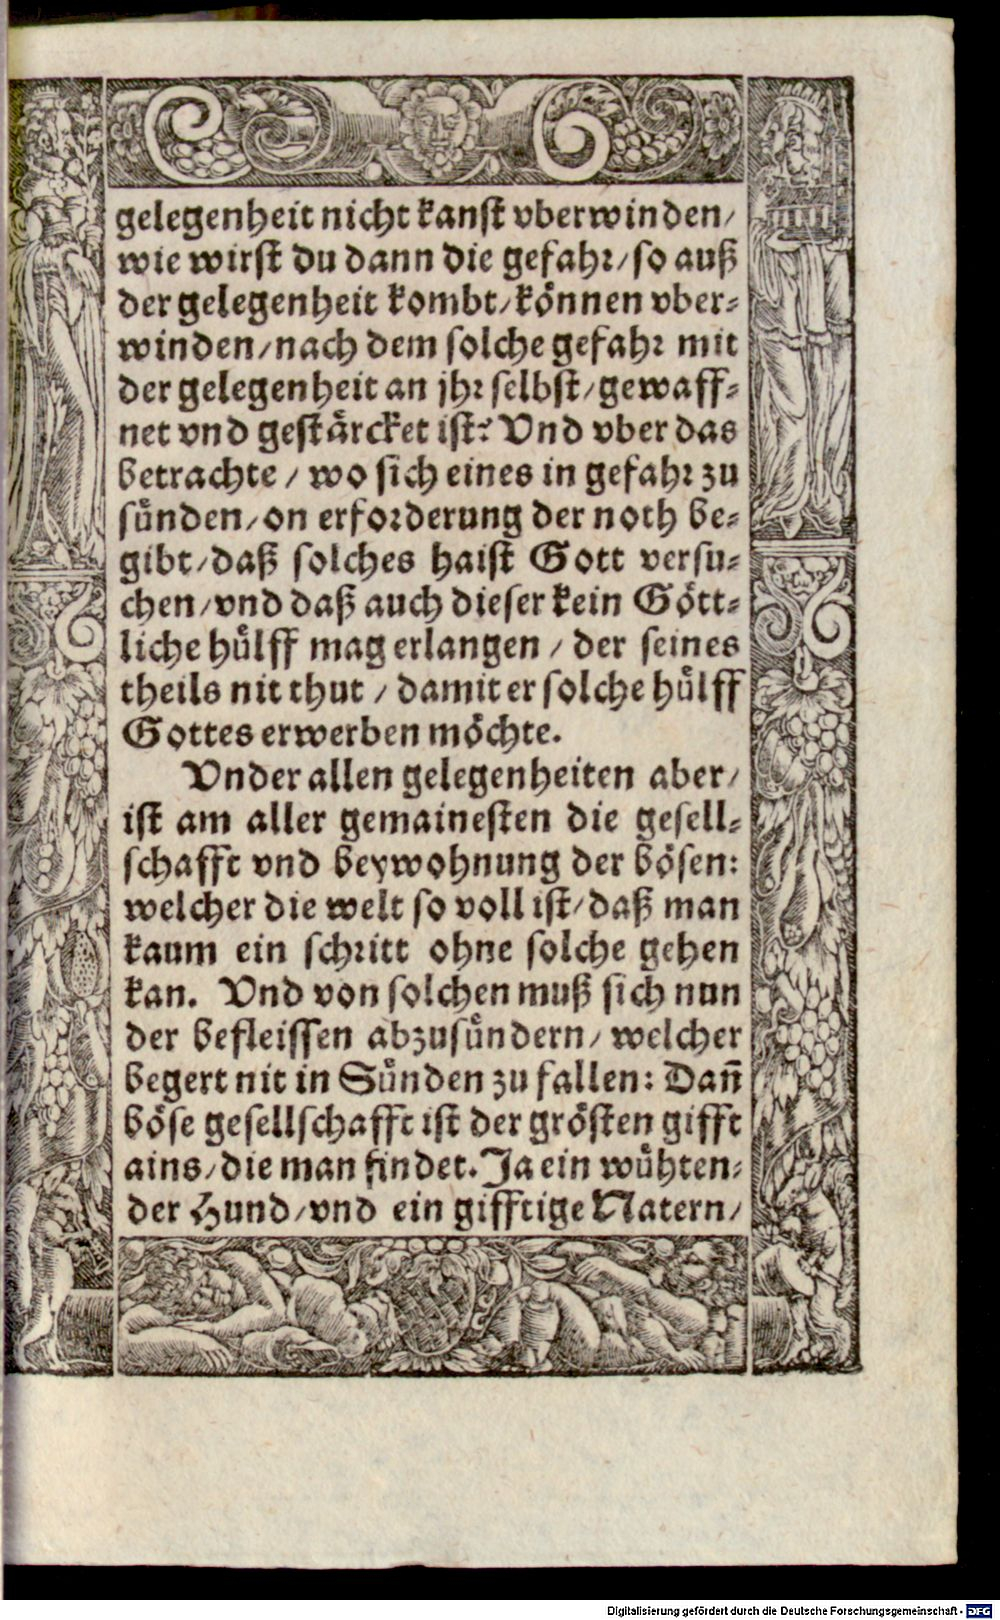 gelegenheit nicht kanst vberwinden/
wie wirst du dann die gefahr/so auß
der gelegenheit kombt/können vber-
winden/nach dem solche gefahr mit
der gelegenheit an jhr selbst/gewaff-
net vnd gestärcket ist? Vnd vber das
betrachte / wo sich eines in gefahr zu
sünden/on erforderung der noth be-
gibt/daß solches haist Gott versu-
chen/vnd daß auch dieser kein Gött-
liche hülff mag erlangen / der seines
theils nit thut / damit er solche hülff
Gottes erwerben möchte.
Vnder allen gelegenheiten aber/
ist am aller gemainesten die gesell-
schafft vnd beywohnung der bösen:
welcher die welt so voll ist/daß man
kaum ein schritt ohne solche gehen
kan. Vnd von solchen muß sich nun
der befleissen abzusündern/welcher
begert nit in Sünden zu fallen: Dañ
böse gesellschafft ist der grösten gifft
ains/die man findet. Ja ein wühten-
der Hund/vnd ein gifftige Natern/
Digitalisierung gefördert durch die Deutsche Forschungsgemeinschaft - DFG